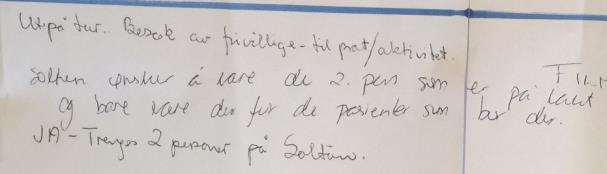 Ut på tur.. Besøk av frivillige - til prat/aktivitet.
Solten ønsker å være de 2. pers som er på laut
og bare være der for de pasienter som bor der.
JA - Trenges 2 personer på Soltun.